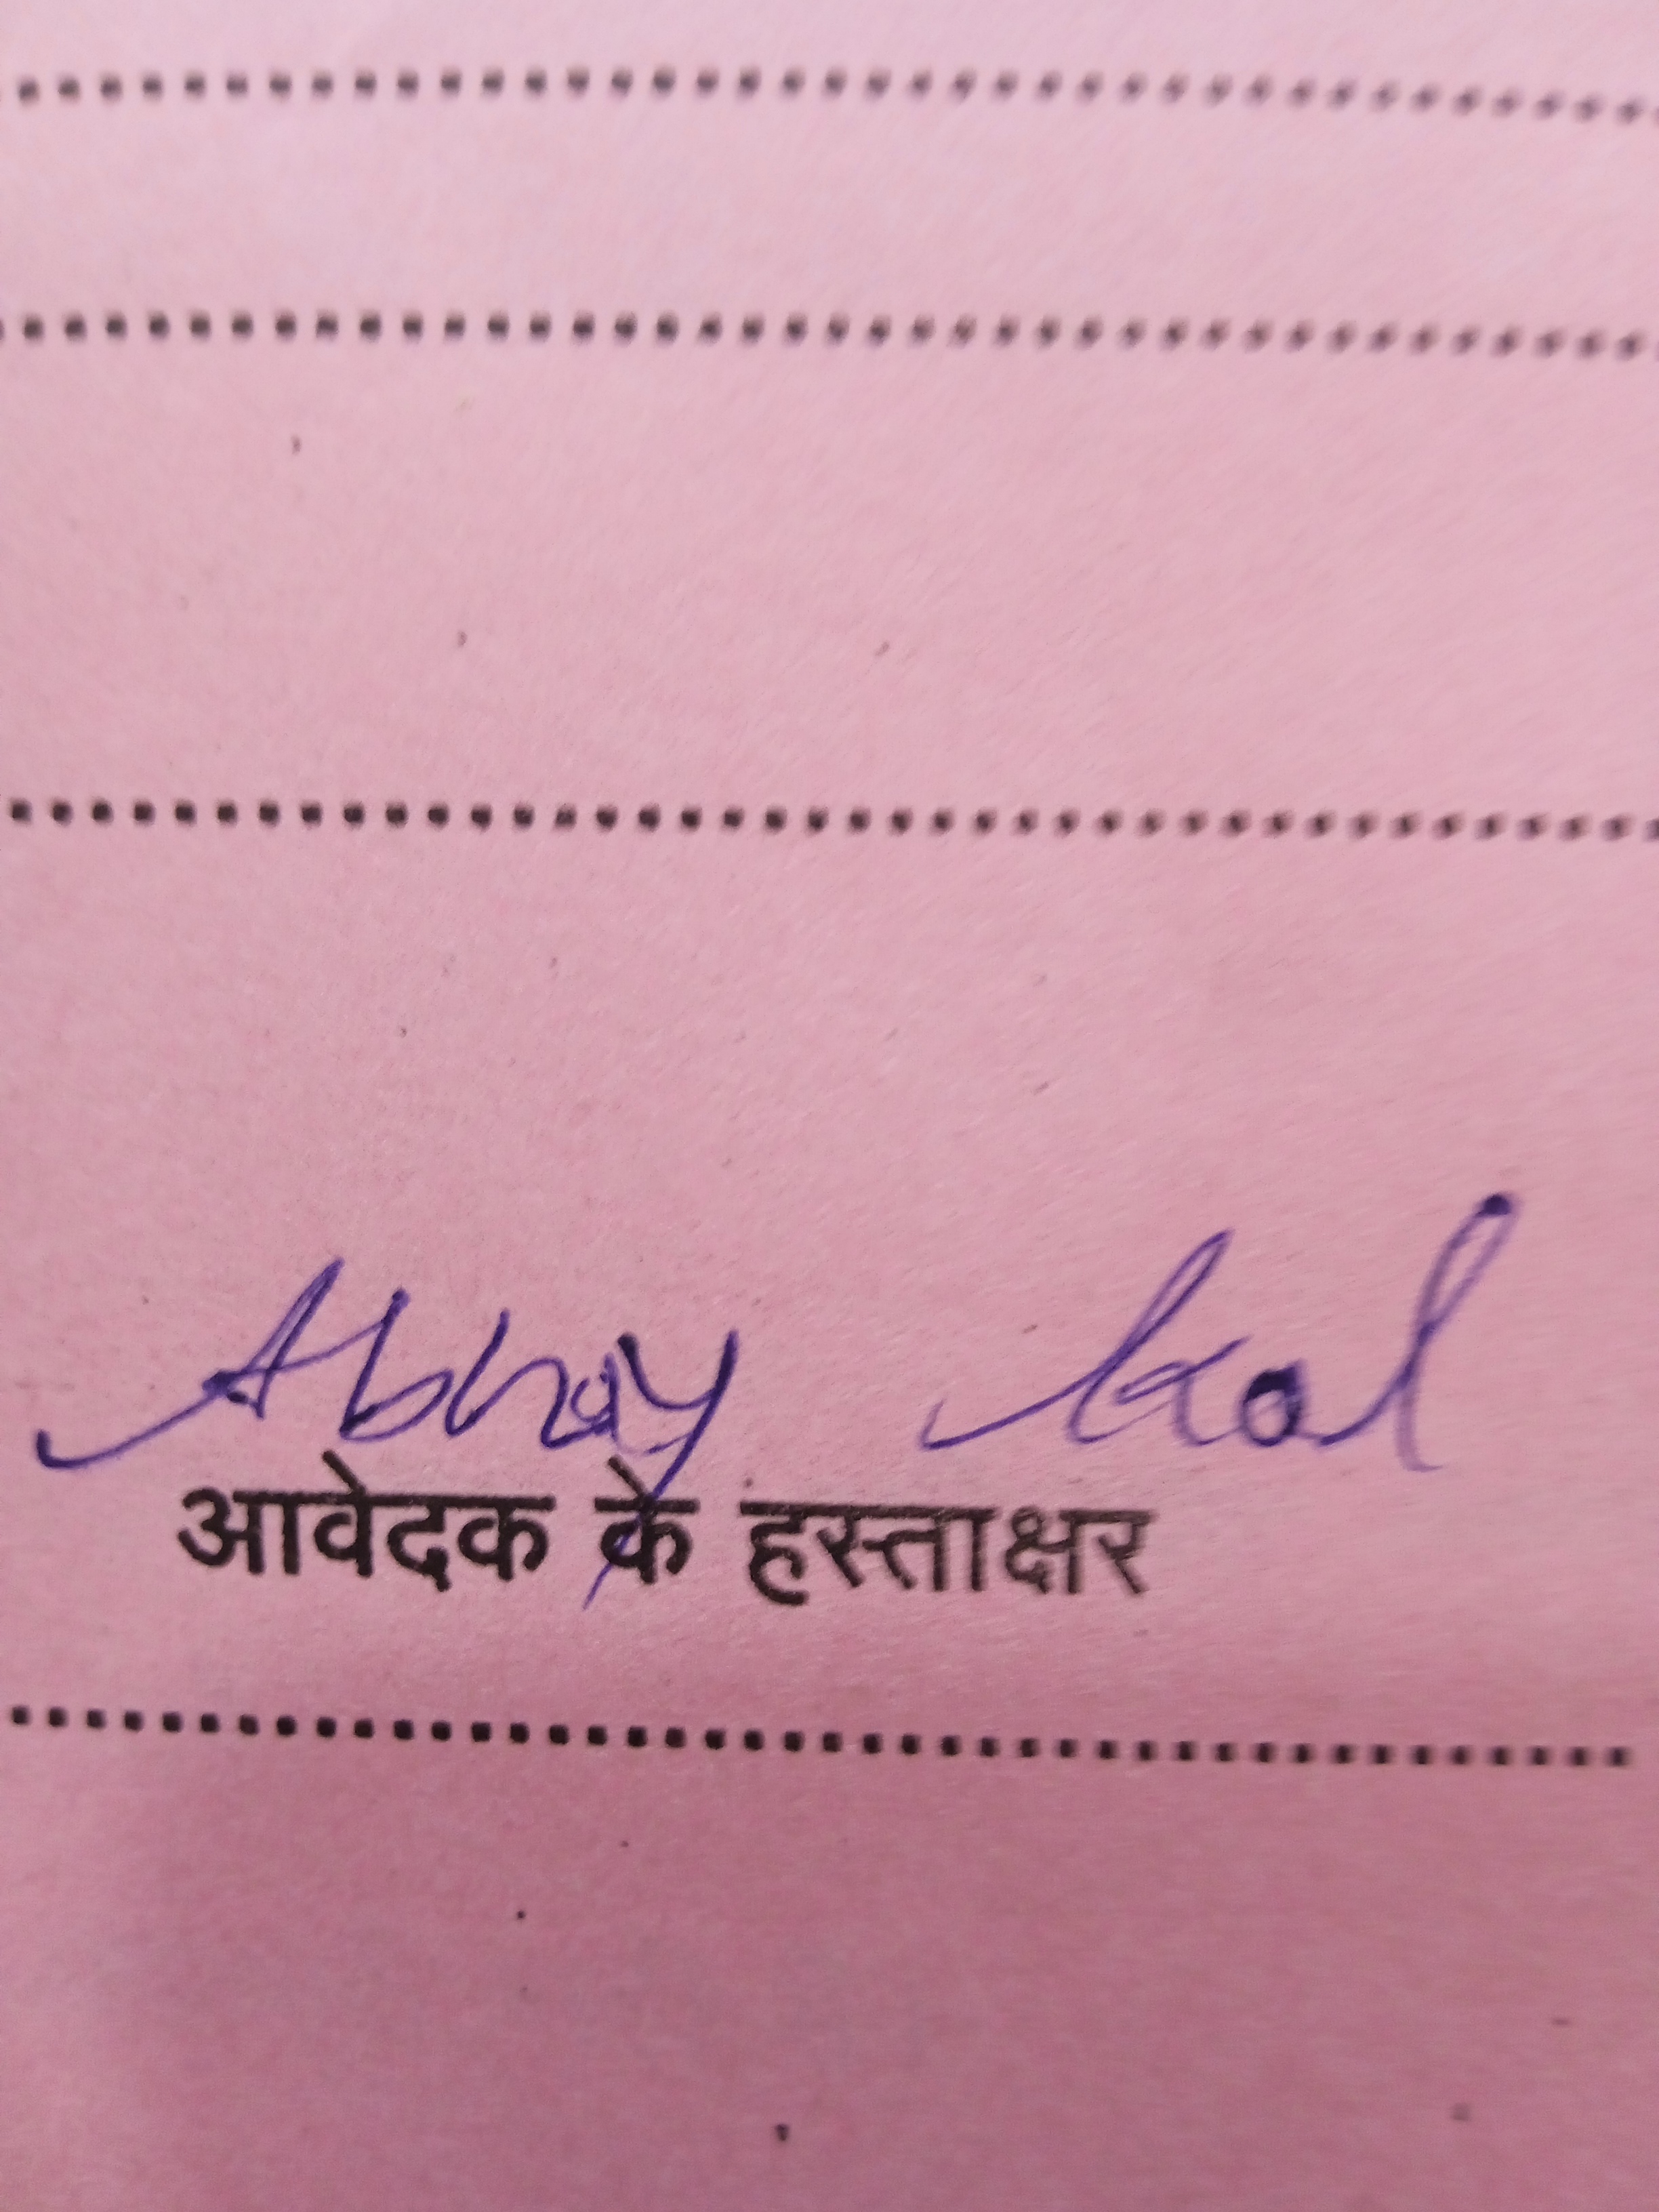 Abhay kol
आवेदक के हस्ताक्षर